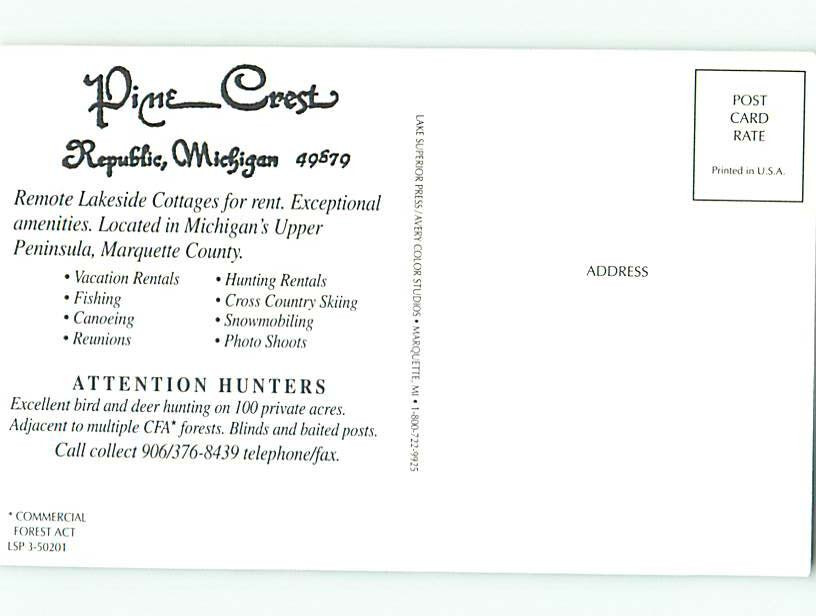 Pine Crest
Republic, Michigan 49879
Remote Lakeside Cottages for rent. Exceptional
amenities. Located in Michigan's Upper
Peninsula, Marquette County.
• Vacation Rentals
• Fishing
• Canoeing
• Reunions
• Hunting Rentals
• Cross Country Skiing
• Snowmobiling
• Photo Shoots
ATTENTION HUNTERS
Excellent bird and deer hunting on 100 private acres.
Adjacent to multiple CFA* forests. Blinds and baited posts.
Call collect 906/376-8439 telephone/fax.
* COMMERCIAL
FOREST ACT
LSP 3-50201
LAKE SUPERIOR PRESS/AVERY COLOR STUDIOS • MARQUETTE, MI • 1-800-722-9925
POST
CARD
RATE
Printed in U.S.A.
ADDRESS